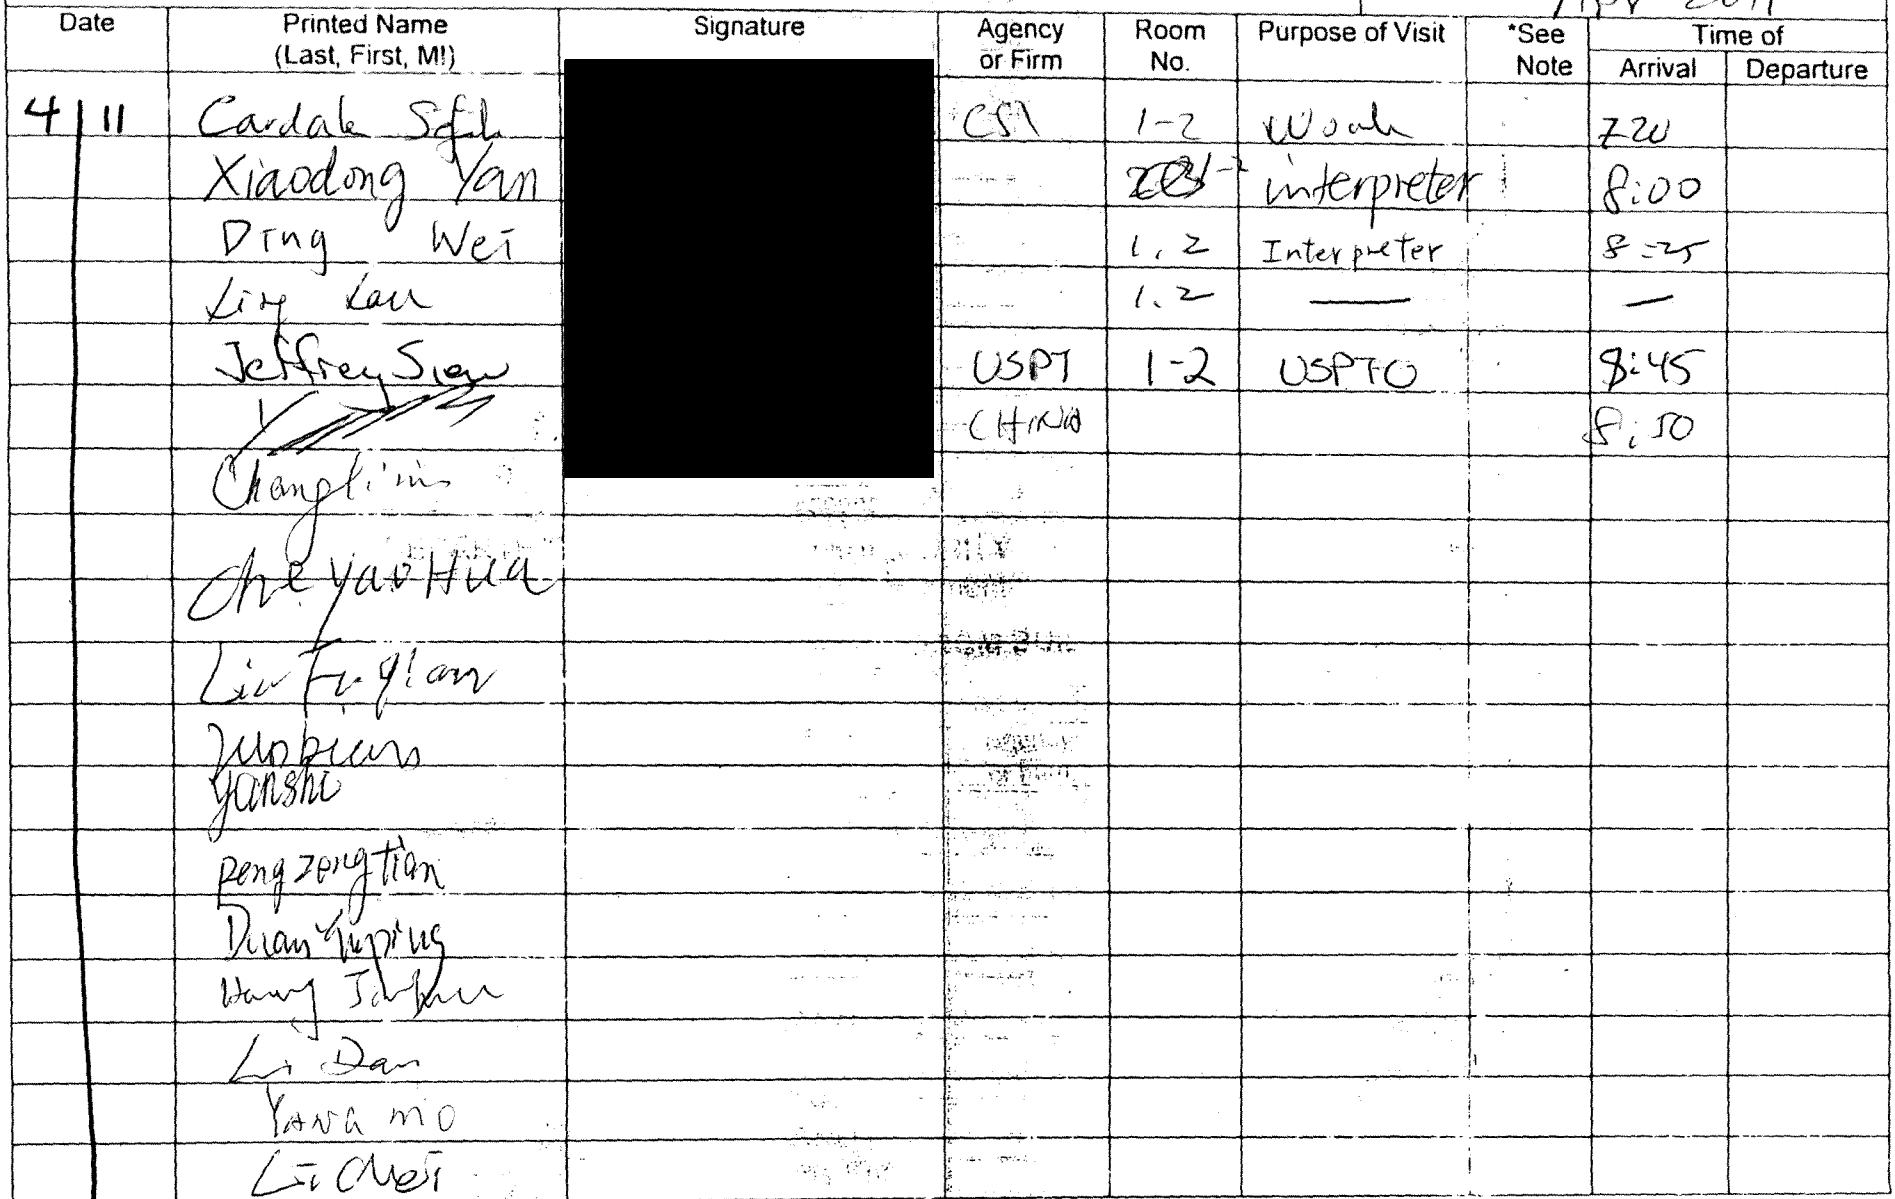 Apr 2011
Date Printed Name (Last, First, MI) Signature Agency or Firm Room No. Purpose of Visit *See Note Time of Arrival Departure
4/11 Cardale CSI 1-2 Work 720
Xiaodong Yan interpreter 8:00
Ding Wei 1,2 Interpreter 8:25
1.2 — —
Jeffrey USPT 1-2 USPTO 8:45
CHINA 8:50
Che YaoHua
Liu Fuqian
yanshi
pengzengtian
Duan Yuping
Li Dan
YANG MO